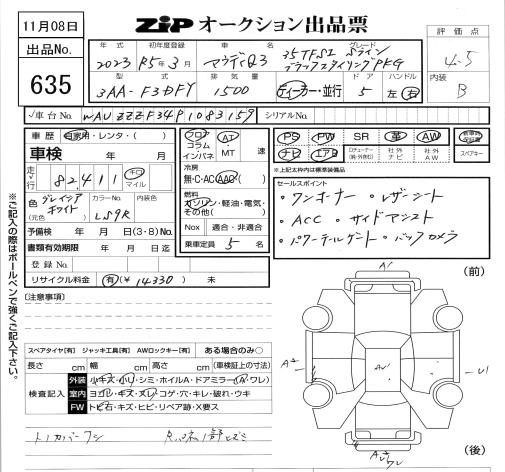 11月08日
出品No.
635
ZIP オークション出品票
評価点
4-5
内装
B
年式 初年度登録 車名 グレード
2023 R5年3月 アウディQ3 35TFSI Sライン
ブラックスタイリングPKG
型式 排気量 ドア ハンドル
3AA-F3DFY 1500 ディーラー・並行 5 左・右
車台No. WAUZZZF34P1083159 シリアルNo.
車歴 自家用・レンタ・( )
車検 年 月
走行 82,411 キロ マイル
色 グレイシアホワイト (元色) カラーNo. LS9R 内装色
予備検 年 月 日(3・8)No.
書類有効期限 年 月 日迄
登録No.
リサイクル料金 有(¥ 14330 ) 未
フロア コラム インパネ AT・MT 速
冷房 無・C・AC・AAC( )
燃料 ガソリン・軽油・電気・その他( )
Nox 適合・非適合
乗車定員 5 名
PS PW SR 革 AW 新車時保証書
ナビ エアB 社外ナビ 社外AW スペアキー
※上記太枠内は標準装備品
セールスポイント
・ワンオーナー ・レザーシート
・ACC ・サイドアシスト
・パワーテールゲート ・バックカメラ
※ご記入の際はボールペンで強くご記入下さい。
[注意事項]
スペアタイヤ[有] ジャッキ工具[有] AWロックキー[有] ある場合のみ○
長さ cm 幅 cm 高さ cm (車検証上の寸法)
検査記入
外装 小キズ・小リ・シミ・ホイルA・ドアミラー(A・ワレ)
室内 ヨゴレ・キズ・スレ・コゲ・穴・キレ・破れ・ウキ
FW トビ石・キズ・ヒビ・リペア跡・X要ス
(前)
A1
U1
(後)